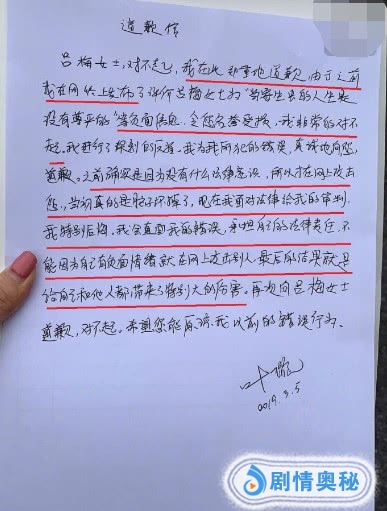 道歉信
吕梅女士,对不起,我在此郑重地道歉,由于之前
我在网络上发布了评价吕梅女士为"当寄生虫的人生是
没有尊严的"等负面信息,令您名誉受损,我非常的对不
起,我进行了深刻的反省,我为我所犯的错误,真诚地向您
道歉。之前确实是因为没有什么法律意识,所以才在网上攻击
您,当初真的是脑子坏掉了,现在我面对法律给我的审判
我特别后悔,我会直面我的错误,承担自己的法律责任,不
能因为自己有负面情绪就在网上攻击别人,最后的结果就是
给自己和他人都带来了特别大的伤害。再次向吕梅女士
道歉,对不起。希望您能原谅我以前的错误行为。
2019.3.5
剧情奥秘